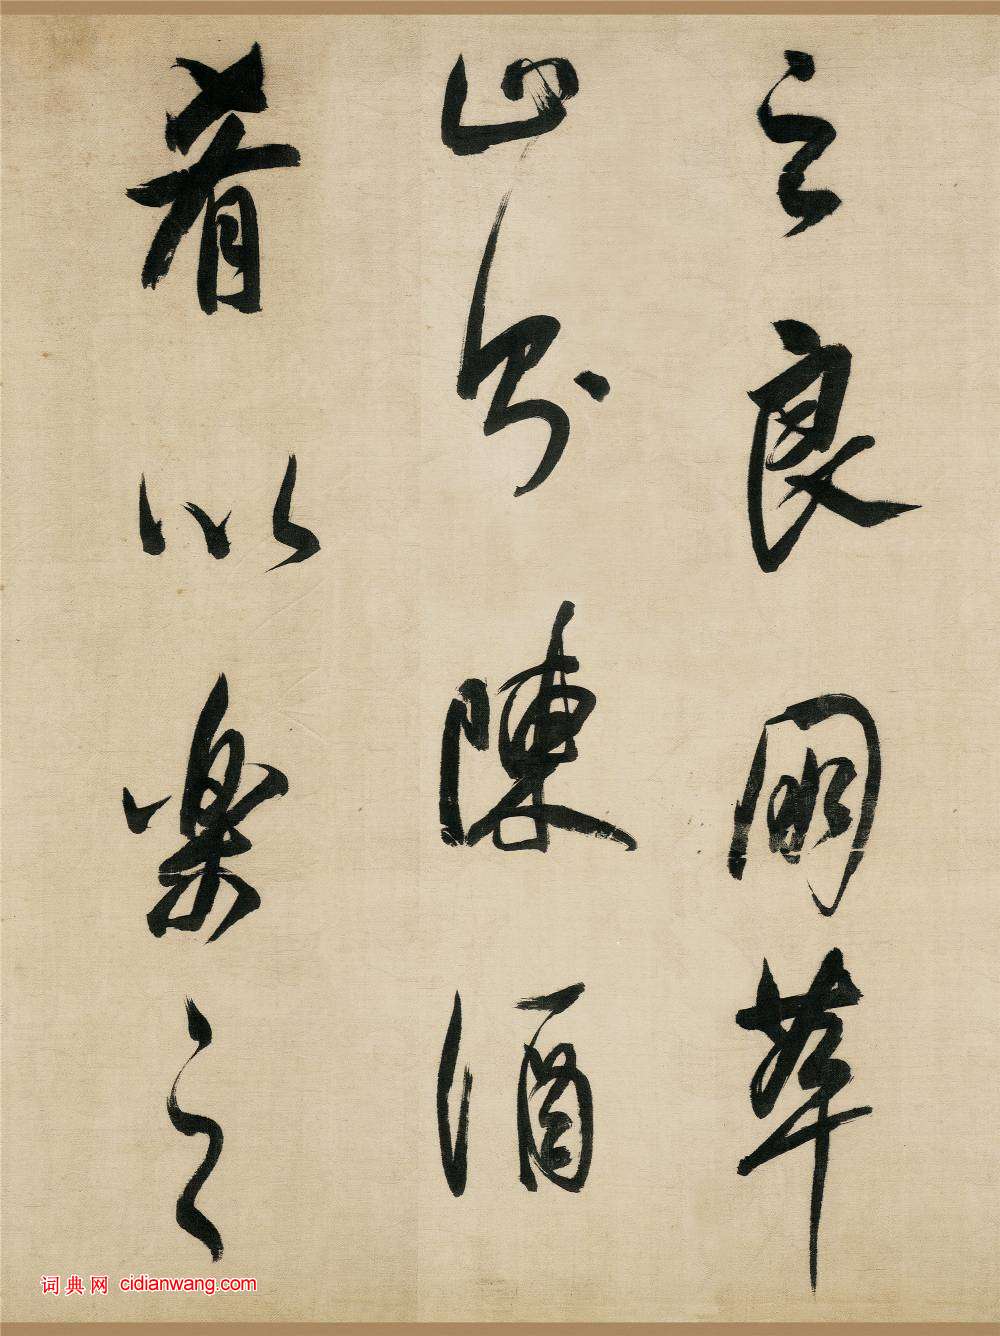 之良朋萃
止則陳酒
肴以樂之
词典网 cidianwang.com